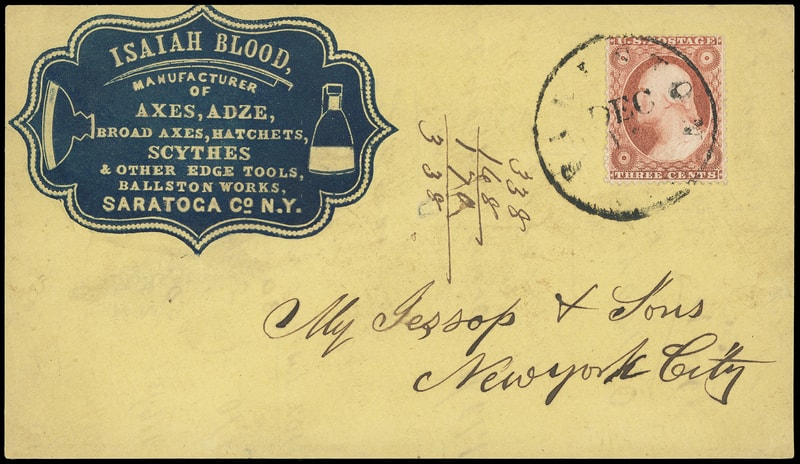 ISAIAH BLOOD,
MANUFACTURER
OF
AXES, ADZE,
BROAD AXES, HATCHETS,
SCYTHES
& OTHER EDGE TOOLS,
BALLSTON WORKS,
SARATOGA Cº N.Y.
U.S. POSTAGE
THREE CENTS
DEC
338
168
338
Jessop & Sons
New york City